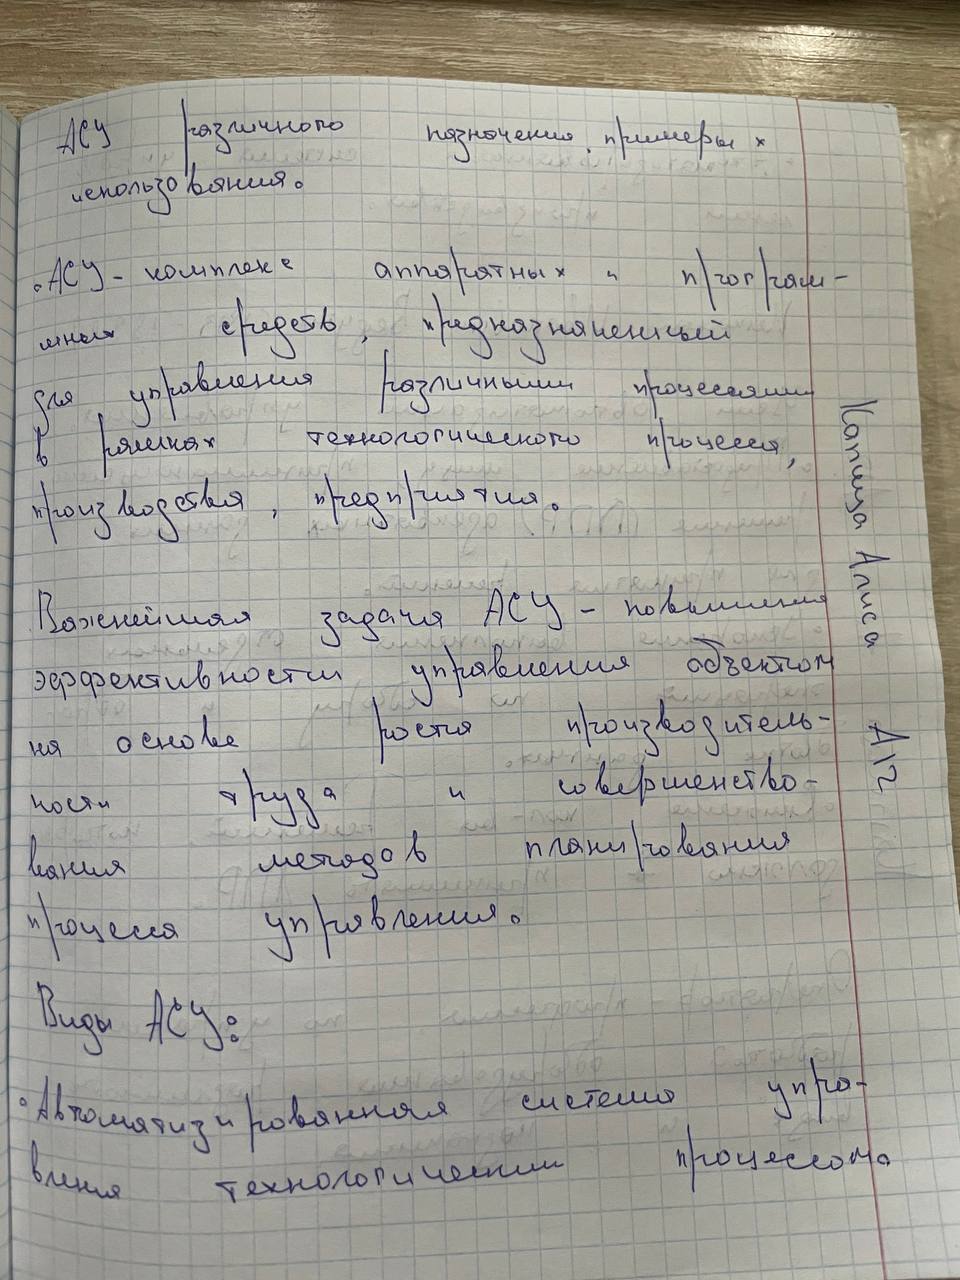 АСУ различного назначения, примеры их
использования.
• АСУ - комплекс аппаратных и програм-
мных средств, предназначенный
для управления различными процессами
в рамках технологического процесса,
производства, предприятия.
Важнейшая задача АСУ - повышения
эффективности управления объектом
на основе роста производитель-
ности труда и совершенство-
вания методов планирования
процесса управления.
Виды АСУ:
• Автоматизированная система упра-
вления технологическим процессом.
Капица Алиса А12